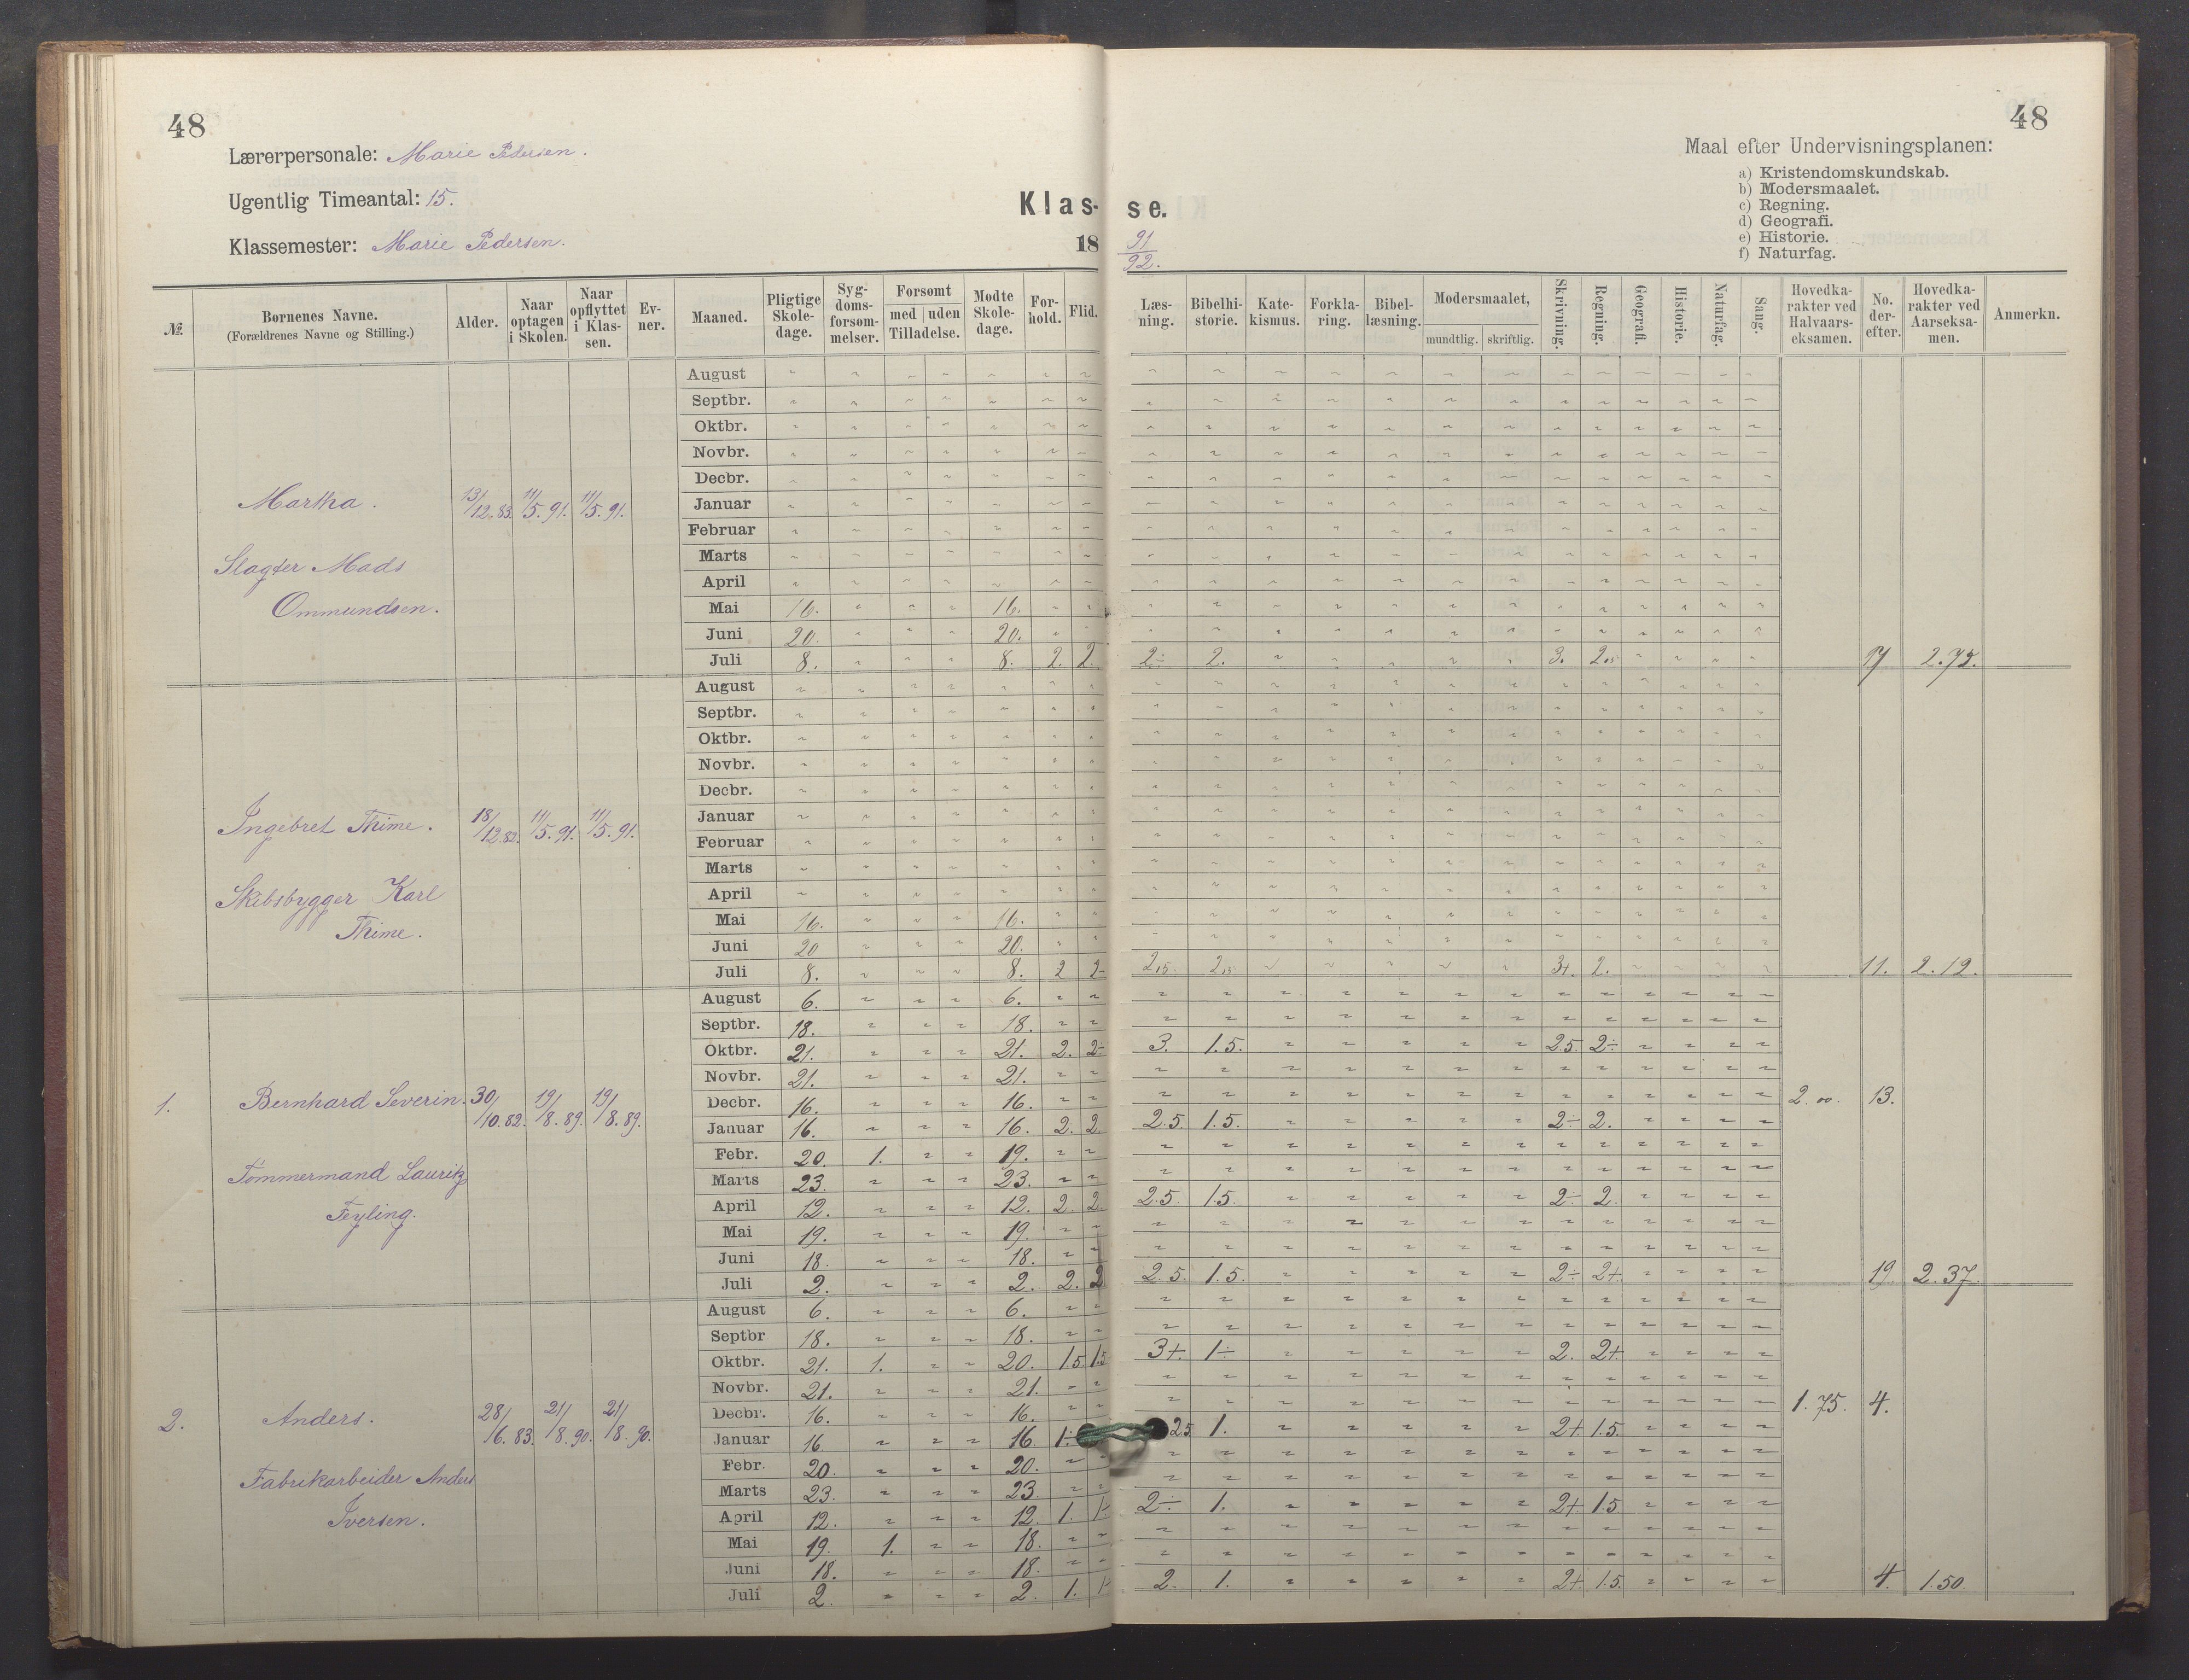 48
48
Lærerpersonale: Marie Pedersen.
Ugentlig Timeantal: 15.
Klassemester: Marie Pedersen.
Klas- se.
18 91/92.
Maal efter Undervisningsplanen:
a) Kristendomskundskab.
b) Modersmaalet.
c) Regning.
d) Geografi.
e) Historie.
f) Naturfag.
№ Børnenes Navne. (Forældrenes Navne og Stilling.) Alder. Naar optagen i Skolen. Naar opflyttet i Klassen. Evner. Maaned. Pligtige Skoledage. Sygdomsforsømmelser. Forsømt med uden Tilladelse. Mødte Skoledage. Forhold. Flid. Læsning. Bibelhistorie. Katekismus. Forklaring. Bibellæsning. Modersmaalet, mundtlig. skriftlig. Skrivning. Regning. Geografi. Historie. Naturfag. Sang. Hovedkarakter ved Halvaarseksamen. No. derefter. Hovedkarakter ved Aarseksamen. Anmerkn.
Martha. 13/12.83. 11/5.91. 11/5.91.
Slagter Mads
Ommundsen.
August
Septbr.
Oktbr.
Novbr.
Decbr.
Januar
Februar
Marts
April
Mai 16. 16.
Juni 20. 20.
Juli 8. 8. 2. 2. 2÷ 2. 3. 2.15 17 2.75.
Ingebret Thime. 18/12.82. 11/5.91. 11/5.91.
Skibsbygger Karl
Thime.
August
Septbr.
Oktbr.
Novbr.
Decbr.
Januar
Februar
Marts
April
Mai 16. 16.
Juni 20 20.
Juli 8. 8. 2 2- 2,15. 2,15 3+. 2. 11. 2.12.
1. Bernhard Severin. 30/10.82. 19/8.89. 19/8.89.
Tømmermand Lauritz
Feyling.
August 6. 6.
Septbr. 18. 18.
Oktbr. 21. 21. 2. 2÷ 3. 1.5. 2.5. 2÷
Novbr. 21. 21.
Decbr. 16. 16. 2.00. 13.
Januar 16. 16. 2. 2. 2.5. 1.5. 2÷ 2.
Febr. 20. 1. 19.
Marts 23. 23.
April 12. 12. 2. 2. 2.5. 1.5. 2÷ 2.
Mai 19. 19.
Juni 18. 18.
Juli 2. 2. 2. 2 2.5. 1.5. 2÷ 2+. 19. 2.37.
2. Anders. 28/6.83. 21/8.90. 21/8.90.
Fabrikarbeider Anders
Iversen.
August 6. 6.
Septbr 18. 18.
Oktbr. 21. 1. 20. 1.5 1.5 3+. 1÷ 2. 2+.
Novbr. 21. 21.
Decbr. 16. 16. 1.75. 4.
Januar 16 16 1÷ 2.5 1. 2+ 1.5.
Febr. 20. 20.
Marts 23. 23.
April 12. 12. 1. 2÷ 1. 2+ 1.5
Mai 19. 1. 18.
Juni 18. 18.
Juli 2. 2. 1. 2. 1. 2+. 1.5. 4. 1.50.